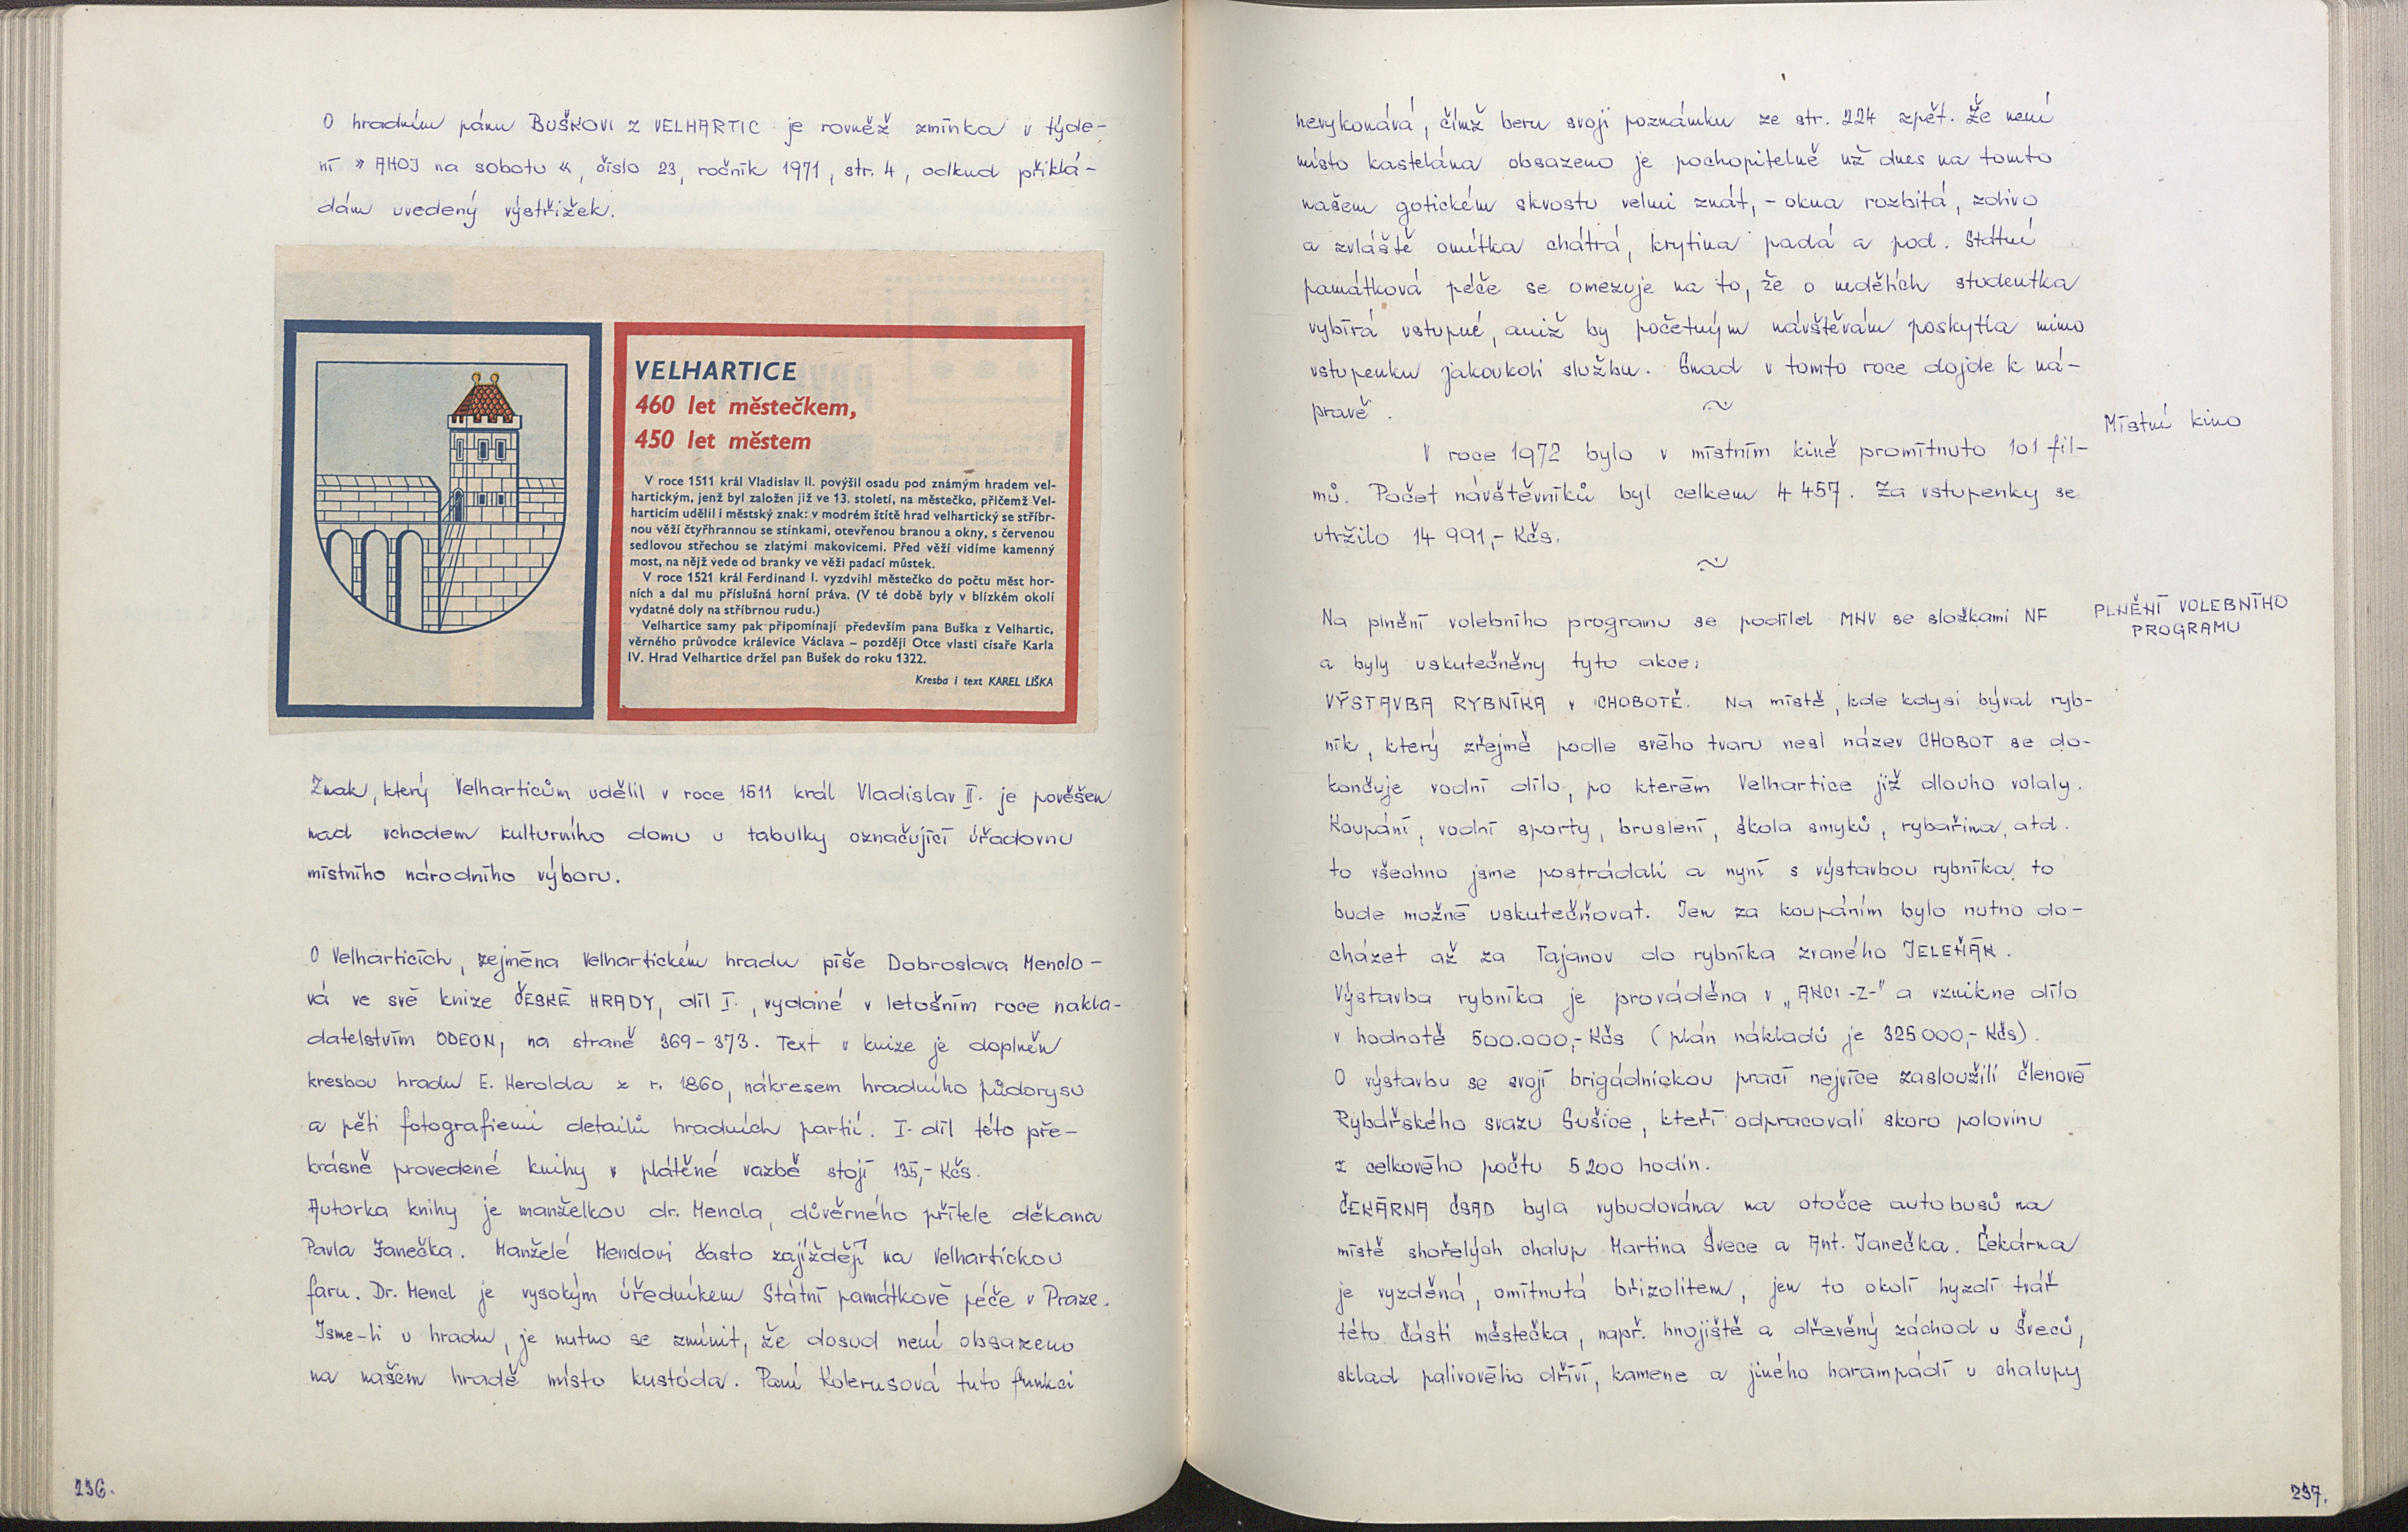 O hradním pánu BUŠKOVI z VELHARTIC je rovněž zmínka v týde-
ní » AHOJ na sobotu «, číslo 23, ročník 1971, str. 4, odkud přiklá-
dám uvedený výstřižek.
VELHARTICE
460 let městečkem,
450 let městem
V roce 1511 král Vladislav II. povýšil osadu pod známým hradem vel-
hartickým, jenž byl založen již ve 13. století, na městečko, přičemž Vel-
harticím udělil i městský znak: v modrém štítě hrad velhartický se stříbr-
nou věží čtyřhrannou se stínkami, otevřenou branou a okny, s červenou
sedlovou střechou se zlatými makovicemi. Před věží vidíme kamenný
most, na nějž vede od branky ve věži padací můstek.
V roce 1521 král Ferdinand I. vyzdvihl městečko do počtu měst hor-
ních a dal mu příslušná horní práva. (V té době byly v blízkém okolí
vydatné doly na stříbrnou rudu.)
Velhartice samy pak připomínají především pana Buška z Velhartic,
věrného průvodce králevice Václava – později Otce vlasti císaře Karla
IV. Hrad Velhartice držel pan Bušek do roku 1322.
Kresba i text KAREL LIŠKA
Znak, který Velharticům udělil v roce 1511 král Vladislav II. je pověšen
nad vchodem kulturního domu u tabulky označující úřadovnu
místního národního výboru.
O Velharticích, zejména Velhartickém hradu píše Dobroslava Menclo-
vá ve své knize ČESKÉ HRADY, díl I., vydané v letošním roce nakla-
datelstvím ODEON, na straně 369-373. Text v knize je doplněn
kresbou hradu E. Herolda z r. 1860, nákresem hradního půdorysu
a pěti fotografiemi detailů hradních partií. I. díl této pře-
krásně provedené knihy v plátěné vazbě stojí 135,- Kčs.
Autorka knihy je manželkou dr. Mencla, důvěrného přítele děkana
Pavla Janečka. Manželé Menclovi často zajíždějí na Velhartickou
faru. Dr. Mencl je vysokým úředníkem Státní památkové péče v Praze.
Jsme-li u hradu, je nutno se zmínit, že dosud není obsazeno
na našem hradě místo kustóda. Paní Kolerusová tuto funkci
236.
nevykonává, čímž beru svoji poznámku ze str. 224 zpět. Že není
místo kastelána obsazeno je pochopitelně už dnes na tomto
našem gotickém skvostu velmi znát, - okna rozbitá, zdivo
a zvláště omítka chátrá, krytina padá a pod. Státní
památková péče se omezuje na to, že o nedělích studentka
vybírá vstupné, aniž by početným návštěvám poskytla mimo
vstupenku jakoukoli službu. Snad v tomto roce dojde k ná-
pravě.
Místní kino
V roce 1972 bylo v místním kině promítnuto 101 fil-
mů. Počet návštěvníků byl celkem 4 457. Za vstupenky se
utržilo 14 991,- Kčs.
PLNĚNÍ VOLEBNÍHO
PROGRAMU
Na plnění volebního programu se podílel MNV se složkami NF
a byly uskutečněny tyto akce:
VÝSTAVBA RYBNÍKA v CHOBOTĚ. Na místě, kde kdysi býval ryb-
ník, který zřejmě podle svého tvaru nesl název CHOBOT se do-
končuje vodní dílo, po kterém Velhartice již dlouho volaly.
Koupání, vodní sporty, bruslení, škola smyků, rybařina, atd.
to všechno jsme postrádali a nyní s výstavbou rybníka to
bude možné uskutečňovat. Jen za koupáním bylo nutno do-
cházet až za Tajanov do rybníka zvaného JELEŇÁK.
Výstavba rybníka je prováděna v „AKCI -Z-" a vznikne dílo
v hodnotě 500.000,- Kčs (plán nákladů je 325 000,- Kčs).
O výstavbu se svojí brigádnickou prací nejvíce zasloužili členové
Rybářského svazu Sušice, kteří odpracovali skoro polovinu
z celkového počtu 5 200 hodin.
ČEKÁRNA ČSAD byla vybudována na otočce autobusů na
místě shořelých chalup Martina Švece a Ant. Janečka. Čekárna
je vyzděná, omítnutá břizolitem, jen to okolí hyzdí tvář
této části městečka, např. hnojiště a dřevěný záchod u Šveců,
sklad palivového dříví, kamene a jiného harampádí u chalupy
237.